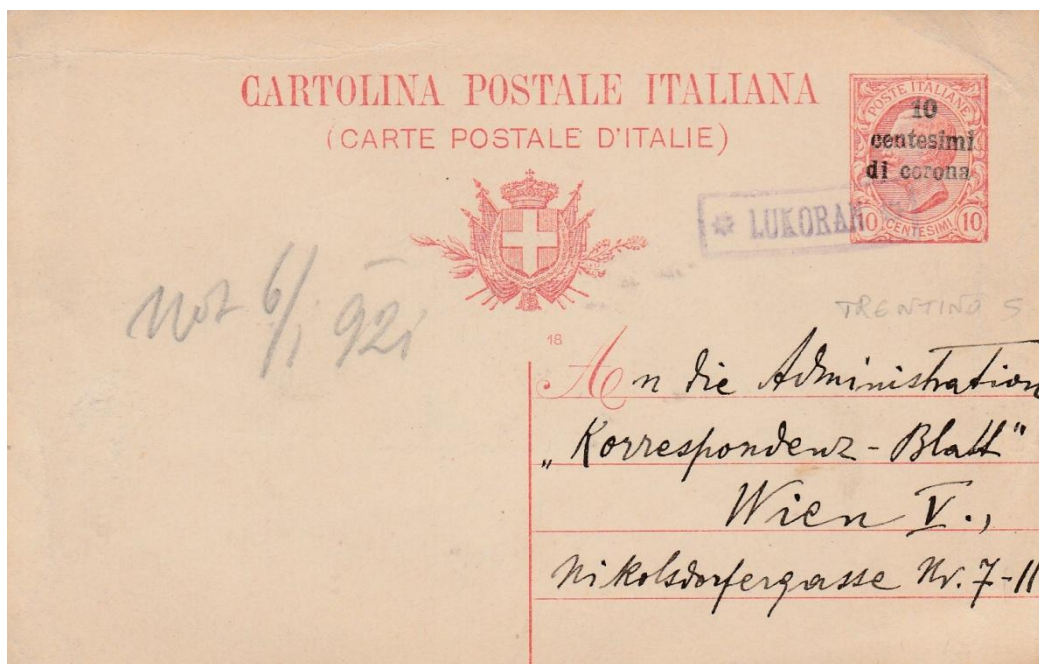 CARTOLINA POSTALE ITALIANA
(CARTE POSTALE D'ITALIE)
POSTE ITALIANE
10
centesimi
di corona
10 CENTESIMI 10
* LUKORAN
not 6/1 92
TRENTINO 5
18
An die Administration
„Korrespondenz-Blatt"
Wien V.,
Nikolsdorfergasse Nr. 7-11